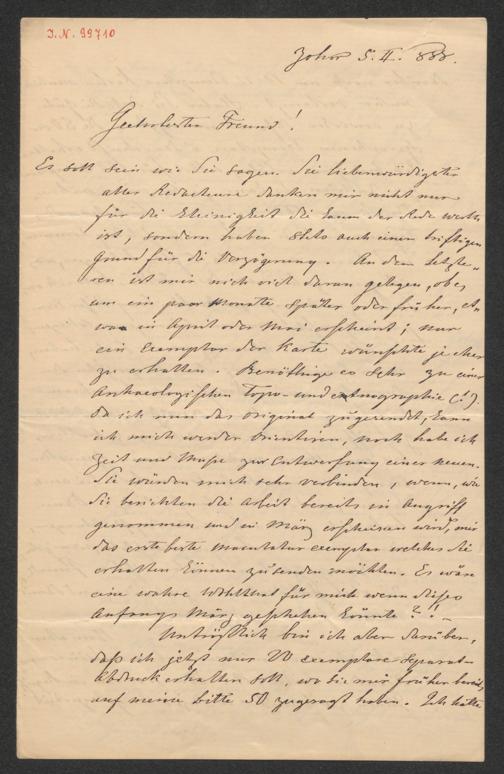 I.N. 99710
Johor 5. II. 888.
Geehrtester Freund!
Es soll sein wie Sie sagen. Sie liebenswürdigster
aller Redacteure danken mir nicht nur
für die Kleinigkeit die kaum der Rede werth
ist, sondern haben stets auch einen triftigen
Grund für die Verzögerung. An dem letzte-
ren ist mir nich viel daran gelegen, ob es
um ein paar Monate später oder früher, et-
was in April oder Mai erscheint; nur
ein Exemplar der Karte wünschte je eher
zu erhalten. Benöthige es sehr zu einer
Archaeologischen Topo- und ethnographie (!).
Da ich nun das Original zugesendet, kann
ich mich weder orientiren, noch habe ich
Zeit und Muße zur Entwerfung einer neuen.
Sie würden mich sehr verbinden, wenn, wie
Sie berichten die Arbeit bereits in Angriff
genommen und in März erscheinen wird, mir
das erste beste Maculatur exemplar welches Sie
erhalten können zusenden möchten. Es wäre
eine wahre Wohlthat für mich wenn dieses
Anfangs März geschehen könnte?! -
Untröstlich bin ich aber darüber,
daß ich jetzt nur 20 exemplare Separat-
Abdruck erhalten soll, wo Sie mir früher bereits
auf meine bitte 50 zugesagt haben. Ich hätte